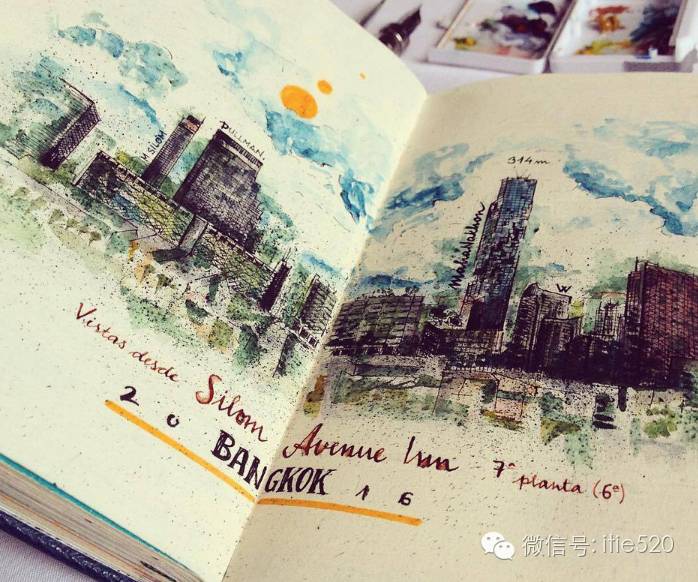 W SILOM
PULLMAN
314m
Mahanakhon
W
Vistas desde Silom Avenue Inn 7ª planta (6ª)
20 BANGKOK 16
微信号: itie520